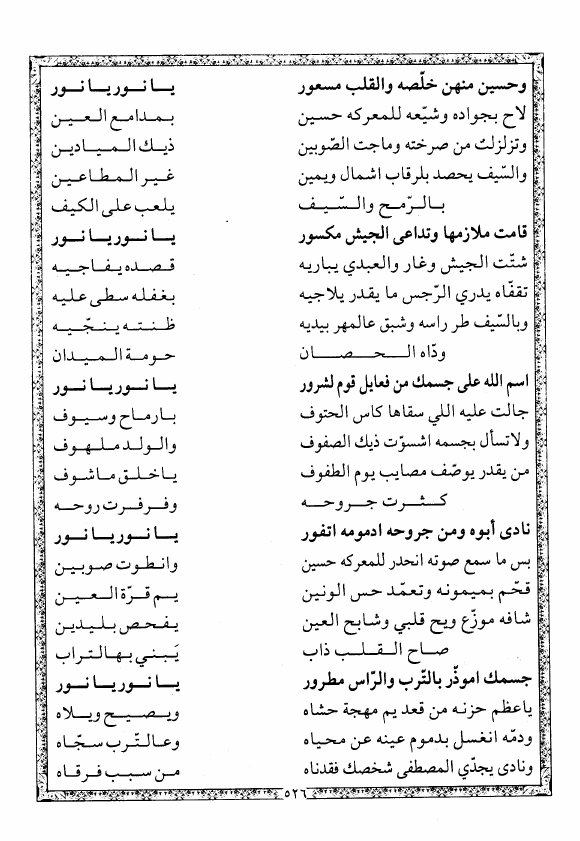 وحسين منهن خلّصه والقلب مسعور يــا نــور يــا نــور
لاح بجواده وشيّعه للمعركه حسين بمدامع العين
وتزلزلت من صرخته وماجت الصّوبين ذيك الميادين
والسّيف يحصد بلرقاب اشمال ويمين غير المطاعين
بالرّمح والسّيف يلعب على الكيف
قامت ملازمها وتداعى الجيش مكسور يــا نــور يــا نــور
شتّت الجيش وغار والعبدي يباريه قصده يفاجيه
تقفّاه يدري الرّجس ما يقدر يلاجيه بغفله سطى عليه
وبالسّيف طر راسه وشبق عالمهر بيديه ظنته ينجّيه
ودّاه الحصان حومة الميدان
اسم الله على جسمك من فعايل قوم لشرور يــا نــور يــا نــور
جالت عليه اللي سقاها كاس الحتوف بارماح وسيوف
ولاتسأل بجسمه اشسوّت ذيك الصفوف والولد ملهوف
من يقدر يوصّف مصايب يوم الطفوف ياخلق ماشوف
كثرت جروحه وفرفرت روحه
نادى أبوه ومن جروحه ادمومه اتفور يــا نــور يــا نــور
بس ما سمع صوته انحدر للمعركه حسين وانطوت صوبين
قحّم بميمونه وتعمّد حس الونين يم قرّة العين
شافه موزّع ويح قلبي وشابح العين يفحص بليدين
صاح القلب ذاب يَبني بهالتراب
جسمك اموذّر بالتّرب والرّاس مطرور يــا نــور يــا نــور
ياعظم حزنه من قعد يم مهجة حشاه ويصيح ويلاه
ودمّه انغسل بدموم عينه عن محياه وعالتّرب سجّاه
ونادى يجدّي المصطفى شخصك فقدناه من سبب فرقاه
٥٢٦